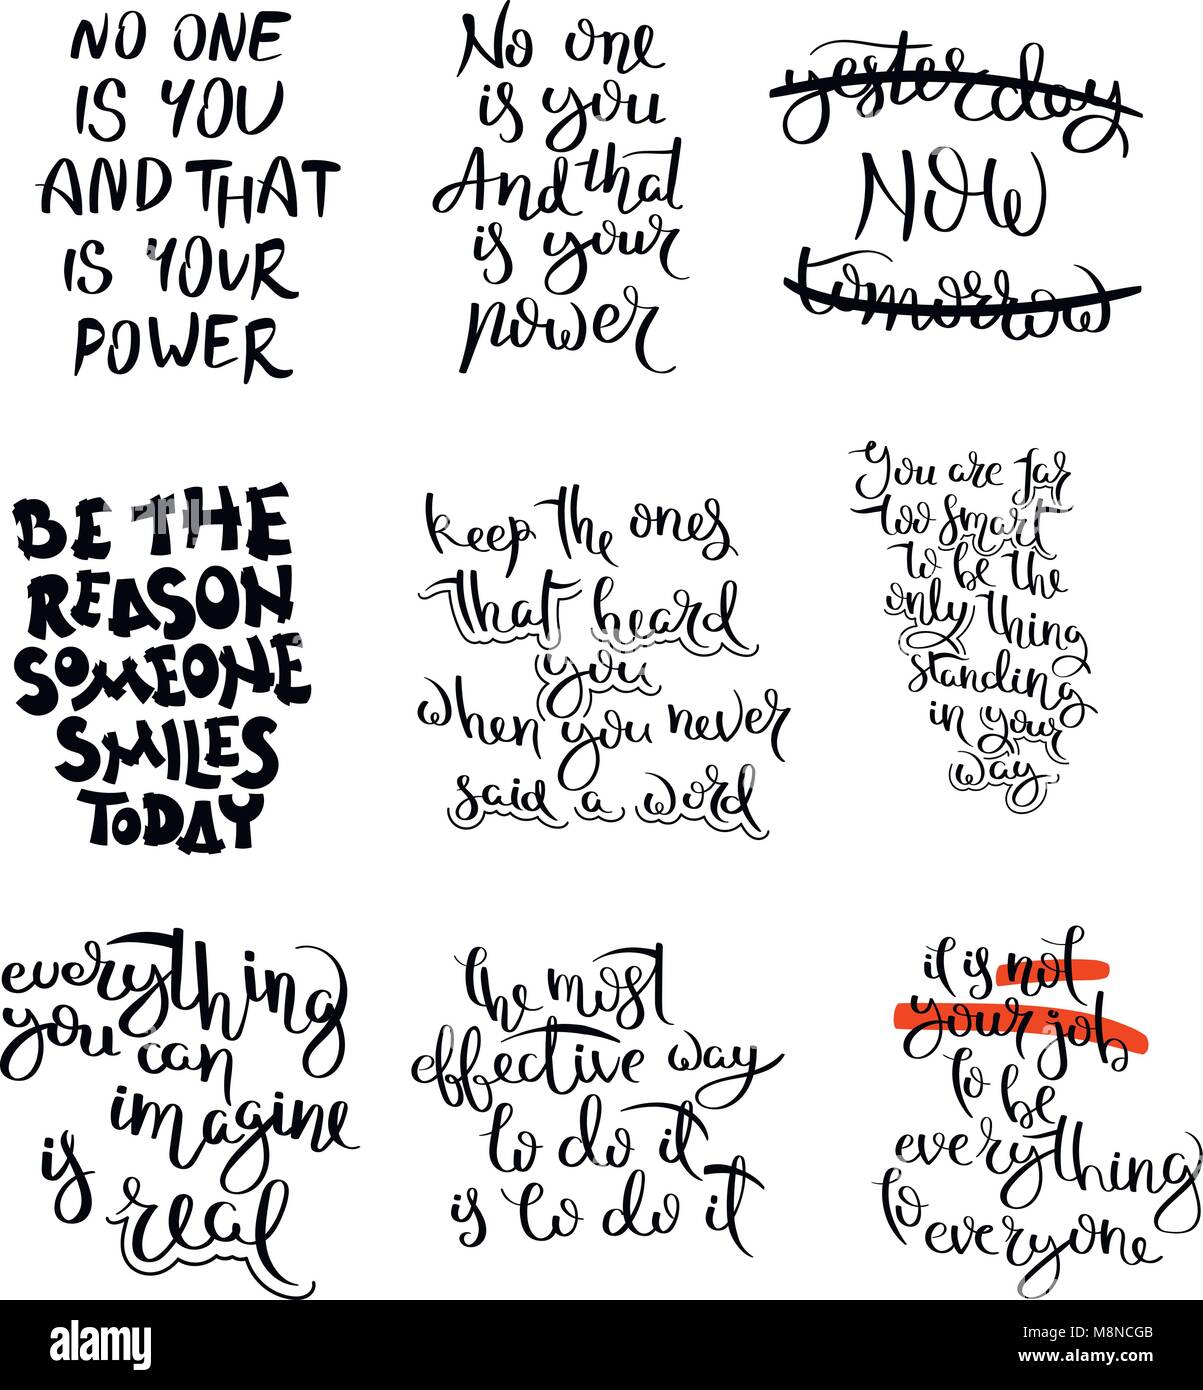 NO ONE
IS YOU
AND THAT
IS YOUR
POWER
No one
is you
And that
is your
power
yesterday
NOW
tomorrow
BE THE
REASON
SOMEONE
SMILES
TODAY
keep the ones
that heard
you
when you never
said a word
You are far
too smart
to be the
only thing
standing
in your
way
everything
you can
imagine
is
real
the most
effective way
to do it
is to do it
it is not
your job
to be
everything
to everyone
alamy
Image ID: M8NCGB
www.alamy.com